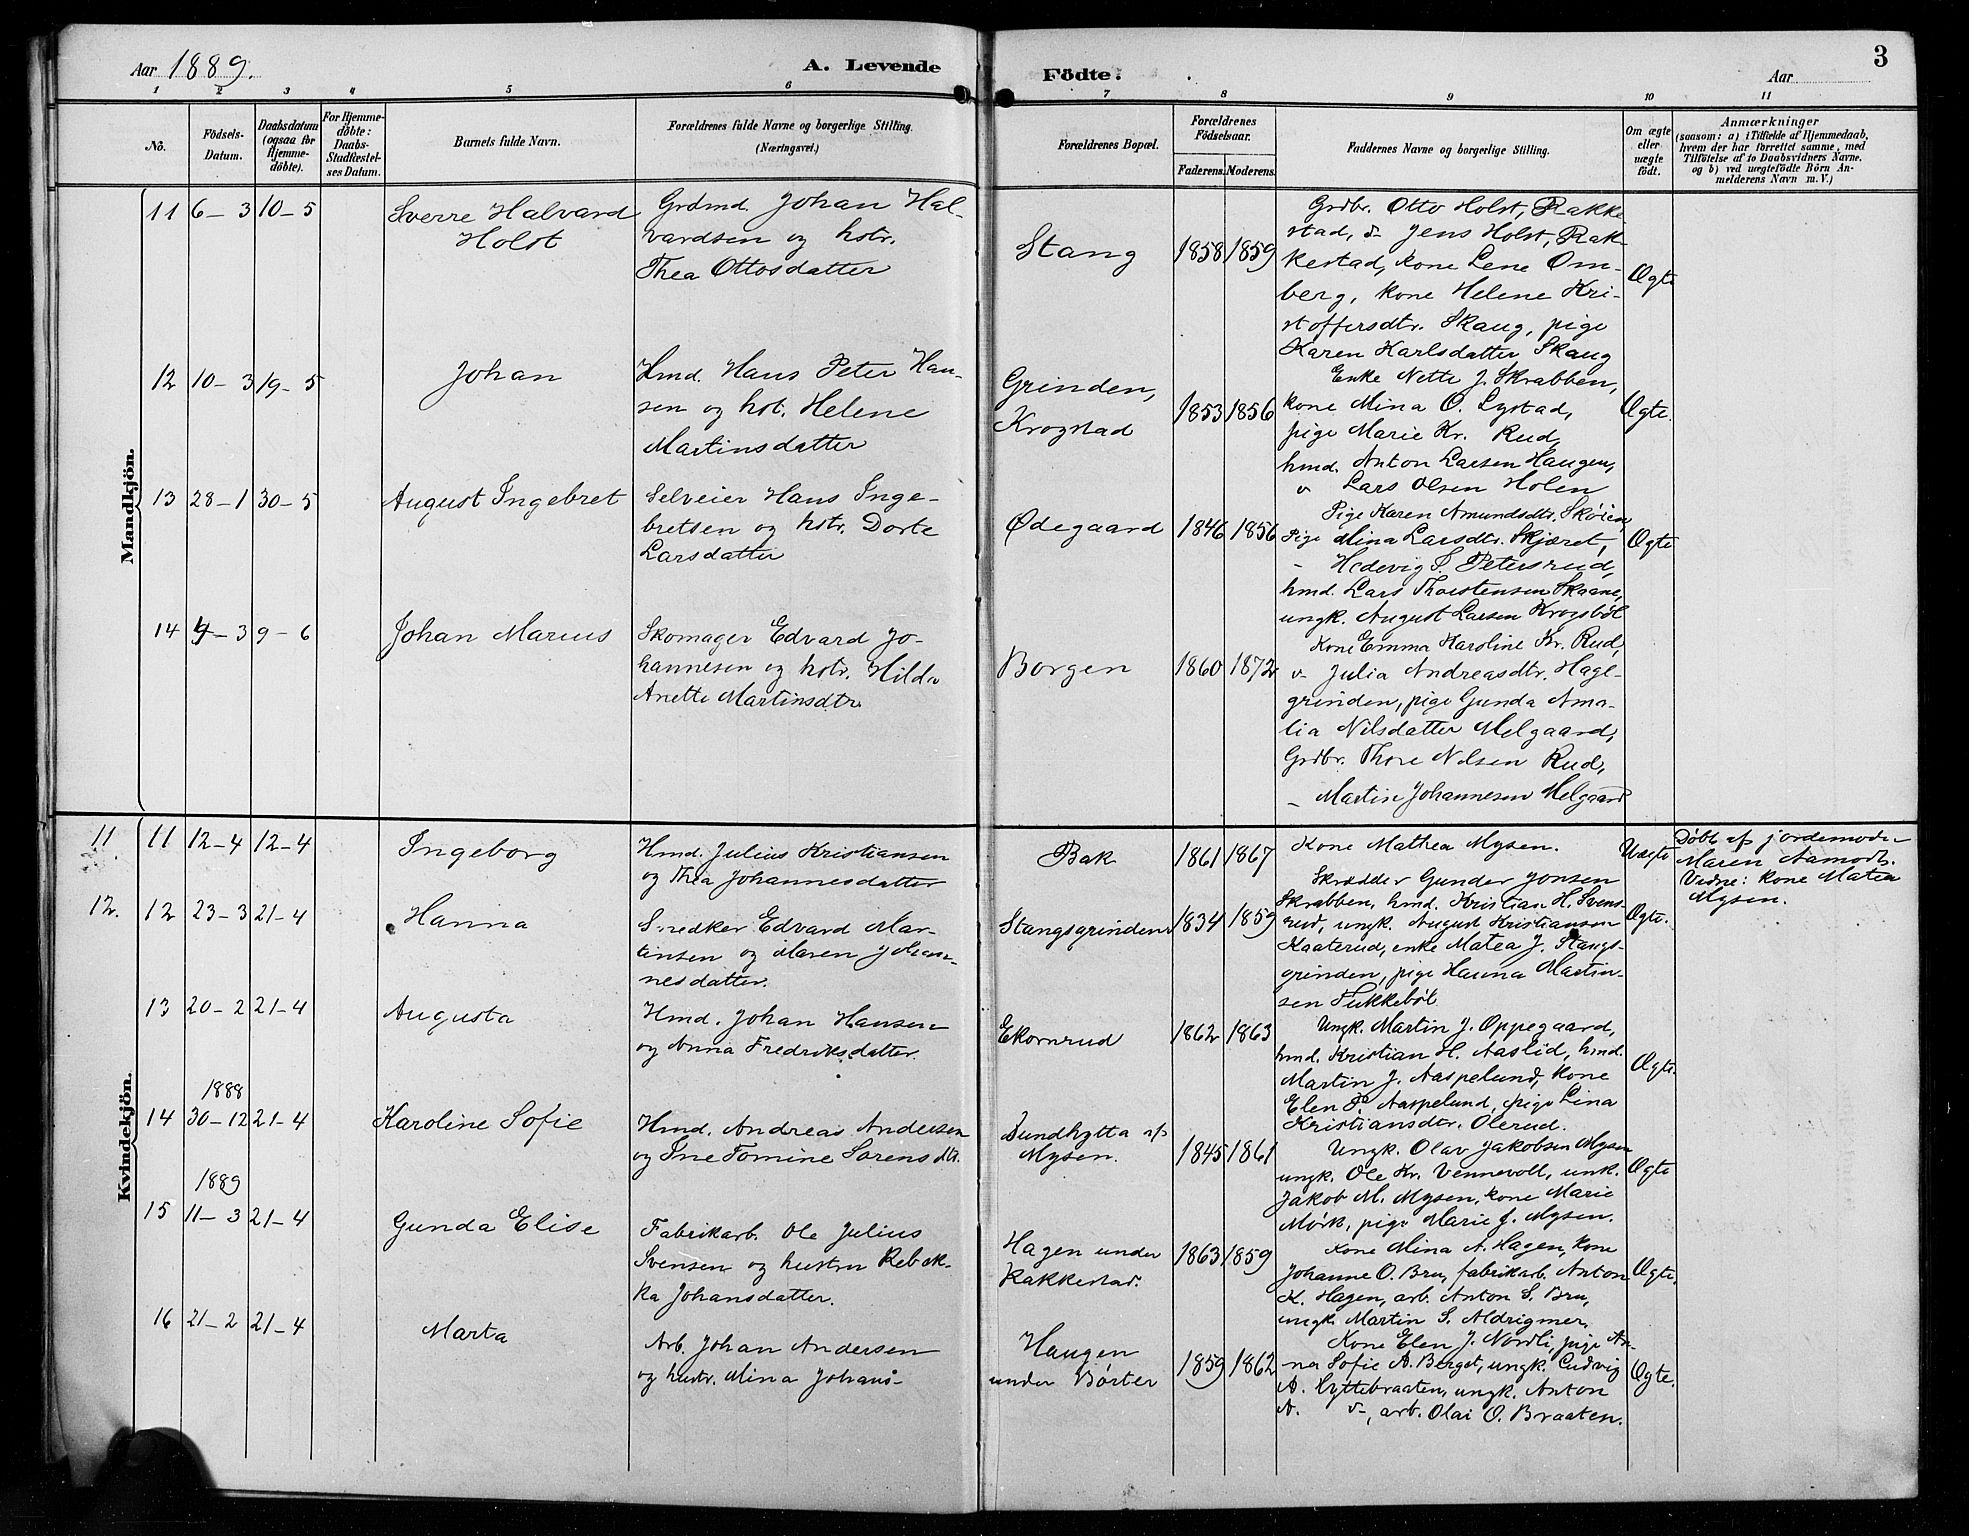 Aar 1889.
A. Levende
Födte.
Aar
3
1 2 3 4 5 6 7 8 9 10 11
No.
Födsels-
Datum.
Daabsdatum
(ogsaa for
Hjemme-
döbte).
For Hjemme-
döbte:
Daabs-
Stadfæstel-
ses Datum.
Barnets fulde Navn.
Forældrenes fulde Navne og borgerlige Stilling.
(Næringsvei.)
Forældrenes Bopæl.
Forældrenes
Födselsaar.
Faderens. Moderens.
Faddernes Navne og borgerlige Stilling.
Om ægte
eller
uægte
födt.
Anmærkninger
(saasom: a) i Tilfælde af Hjemmedaab,
hvem der har forrettet samme, med
Tilföielse af to Daabsvidners Navne,
og b) ved uægtefödte Börn An-
melderens Navn m. V.)
Mandkjön.
11 6-3 10-5
Sverre Halvard
Holst
Grdmd. Johan Hal-
vardsen og hstr.
Thea Ottosdatter
Stang
1858 1859
Grdbr. Otto Holst, Rakke-
stad, v- Jens Holst, Rak-
kestad, kone Lene Om-
berg, kone Helene Kri-
stoffersdtr. Skaug, pige
Karen Karlsdatter Skaug
Ægte
12 10-3 19-5
Johan
Hmd. Hans Peter Han-
sen og hst. Helene
Martinsdatter
Grinden,
Krogstad
1853 1856
Enke Nette J. Skrabben,
kone Mina O. Lystad,
pige Marie Kr. Rud,
hmd. Anton Larsen Haugen,
v Lars Olsen Holen
Ægte.
13 28-1 30-5
August Ingebret
Selveier Hans Inge-
bretsen og hstr. Dorte
Larsdatter
Ødegaard
1846 1856
Pige Karen Amundsdtr. Skøien,
Pige Mina Larsdtr. Skjæret,
- Hedevig S. Petersrud,
hmd. Lars Thorstensen Skaane,
ungk. August Larsen Krogsböl
Ægte
14 4-3 9-6
Johan Marius
Skomager Edvard Jo-
hannesen og hstr. Hilda
Anette Martinsdtr.
Borgen
1860 1872
Kone Emma Karoline Kr. Rud,
v- Julia Andreasdtr. Hagl-
grinden, pige Gunda Ama-
lia Nilsdatter Melgaard,
Grdbr. Thore Nilsen Rud,
- Martin Johannesen Melgaard
Kvindekjön.
11 11 12-4 12-4
Ingeborg
Hmd. Julius Kristiansen
og Thea Johannesdatter
Bak
1861 1867
Kone Mathea Mysen.
Uægte
Døbt af jordemoder
Maren Aamodt.
Vidne: kone Matea
Mysen.
12. 12 23-3 21-4
Hanna
Snedker Edvard Mar-
tinsen og Maren Johan-
nesdatter.
Stangsgrinden
1834 1859
Skrædder Gunder Jonsen
Skrabben, hmd. Kristian H. Svens-
rud, ungk. August Kristiansen
Kaaterud, enke Matea J. Stangs-
grinden, pige Hanna Martin-
sen Fukkeböl.
Ægte.
13 20-2 21-4
Augusta
Hmd. Johan Hansen
og Anna Fredriksdatter.
Ekornrud
1862 1863
Ungk. Martin J. Oppegaard,
hmd. Kristian H. Aaslid, hmd.
Martin J. Aaspelund, kone
Elen P. Aaspelund, pige Lina
Kristiansdtr. Olerud.
Ægte.
1888
14 30-12 21-4
Karoline Sofie
Hmd. Andreas Andersen
og Ine Tomine Sørensdtr.
Sundhytta af
Mysen.
1845 1861
Ungk. Olav Jakobsen Mysen
ungk. Ole Kr. Vennevoll, unk.
Jakob M. Mysen, kone Marie
Mörk, pige Marie J. Mysen.
Ægte
1889
15 11-3 21-4
Gunda Elise
Fabrikarb. Ole Julius
Svensen og hustru Rebek-
ka Johansdatter.
Hagen under
Rakkestad.
1863 1859
Kone Mina A. Hagen, kone
Johanne O. Bru, fabrikarb. Anton
K. Hagen, arb. Anton S. Bru,
ungk. Martin S. Aldrigmer.
Ægte.
16 21-2 21-4
Marta
Arb. Johan Andersen
og hustr. Mina Johans-
Haugen
under Børter
1859 1862
Kone Elen J. Nordli, pige An-
na Sofie A. Berget, ungk. Ludvig
A. Hyttebraaten, ungk. Anton
A. v-, arb. Olai O. Braaten.
Ægte.